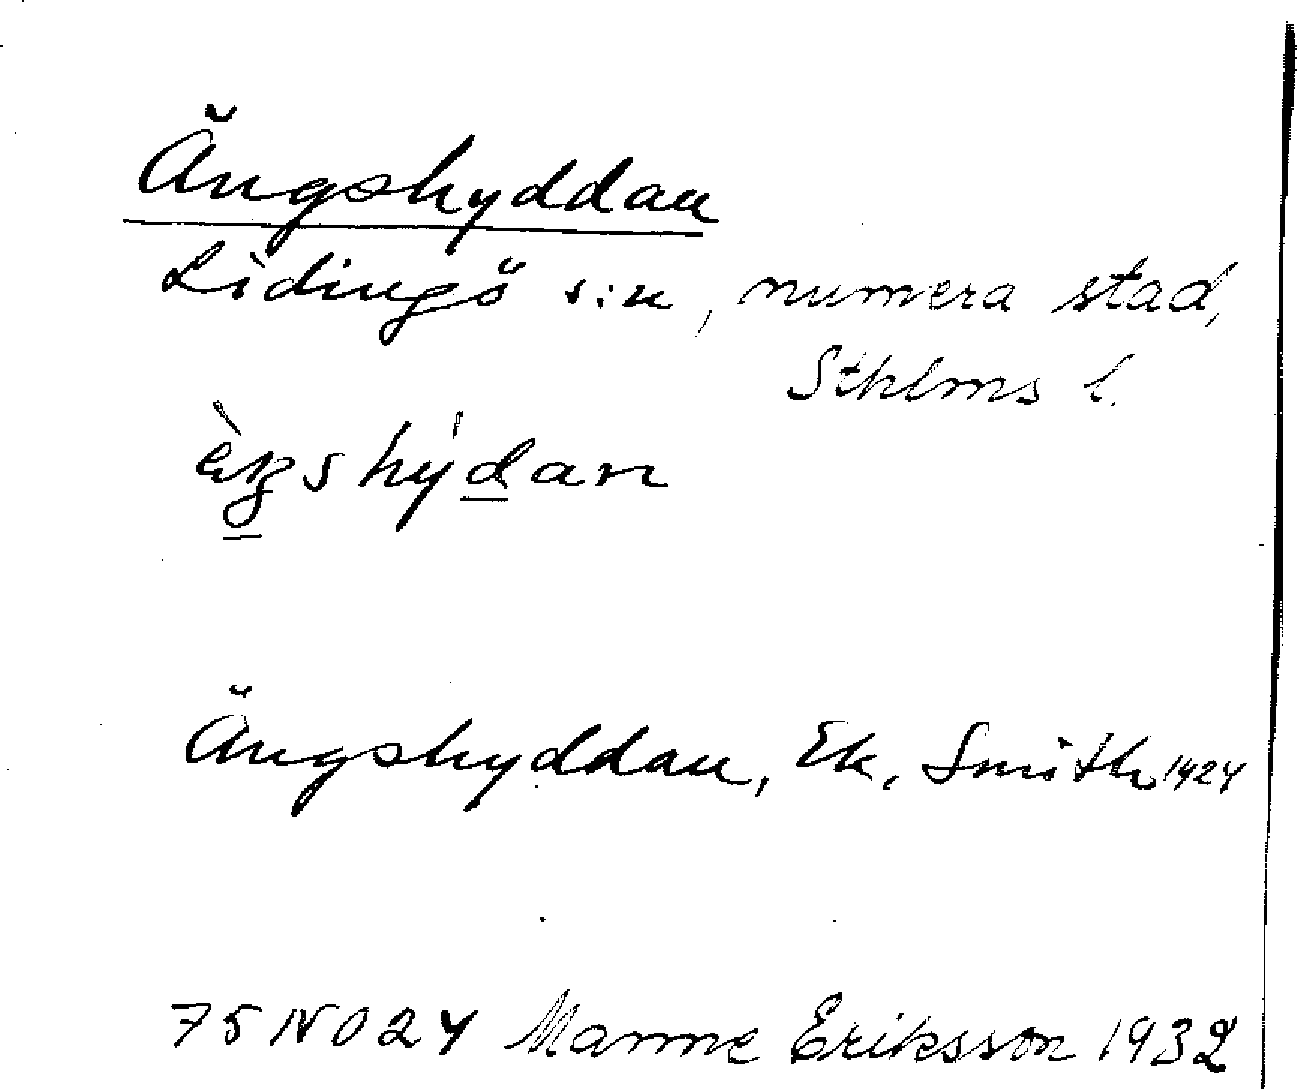 Ängshyddan
Lidingö s:n, numera stad,
Sthlms l.
Ängshyddan, Ek, Smith 1924
75 NO 24 Manne Eriksson 1932